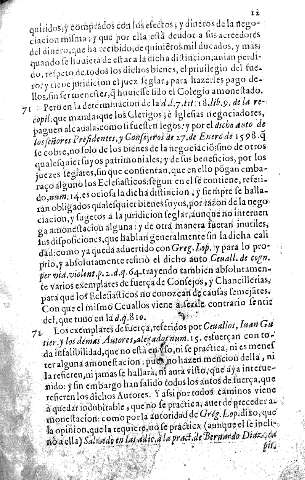 12
quiridos, y comprados con los efectos, y dineros de la nego-
ciacion misma: y que por ella està deudor a sus acreedores
del dinero, que ha recibido, de quinietos mil ducados, y mas;
quando se huuiera de estar a la dicha distinccion, auian perdi-
do, respeto de todos los dichos bienes, el priuilegio del fue-
ro, y tiene jurisdicion el juez seglar, para hazerles pago de-
llos, sin ser menester, q̃ huuiesse el Colegio amonestado.
71 Pero en la determinacion de la d. l. 7. tit. 18. lib. 9. de la re-
copil. que manda: que los Clerigos, è Iglesias negociadores,
paguen alcauala, como si fuessen legos: y por el dicho auto de
los señores Presidentes, y Consejos de 27. de Enero de 1598. q̃
se cobre, no solo de los bienes de la negociaciõ, sino de otros
qualesquier suyos patrimoniales, y de sus beneficios, por los
juezes seglares, sin que consientan, que en ello pongan emba-
raço alguno los Eclesiasticos: segun en el se contiene, referi-
do, num. 14. es ociosa la dicha distinccion, y siempre se halla-
ran obligados qualesquier bienes suyos, por razon de la nego-
ciacion, y sugetos a la juridicion seglar, aunque no interuen-
ga amonestacion alguna: y de otra manera fueran inutiles,
sus disposiciones, que hablan generalmente sin la dicha cali-
dad: como ya queda aduertido con Greg. Lop. y para lo pro-
prio, y absolutamente refirió el dicho auto Ceuall. de cogn.
per viã. violent. p. 2. d. q. 64. trayendo tambien absolutamen-
te varios exemplares de fuerça de Consejos, y Chancillerias,
para que los Eclesiasticos no conozcan de causas semejantes.
Con que el mismo Ceuallos viene a ser de contrario sentir
del, que tuuo en la d. q. 810.
72 Los exemplares de fuerça, referidos por Ceuallos, Ioan Gu-
tier. y los demas Autores, alegados num. 15. esfuerçan con to-
da infalibilidad, que no està en vso, ni se practica, ni es menes-
ter alguna amonestacion: pues no hazen mencion della, ni
la refieren, ni jamas se hallarà, ni aurà visto, que aya interue-
nido: y sin embargo han salido todos los autos de fuerça, que
refieren los dichos Autores. Y assi por todos caminos viene
à quedar indubitable, que no se practica, auer de preceder a-
monestacion: como por la autoridad de Greg. Lop. diso, que
la opinion, que la requiere, no se practica (aunque el se incli-
nò a ella) Salzedo en las adic. à la pract. de Bernardo Diaz, ca-
pit.